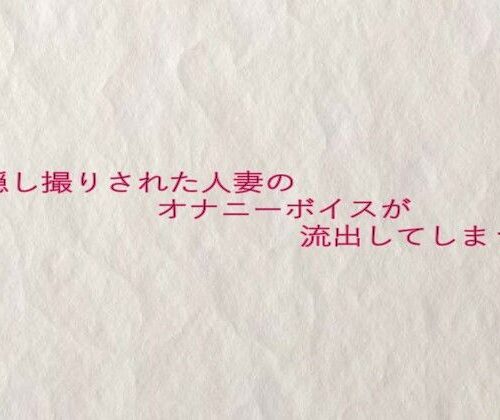 隠し撮りされた人妻の
オナニーボイスが
流出してしま